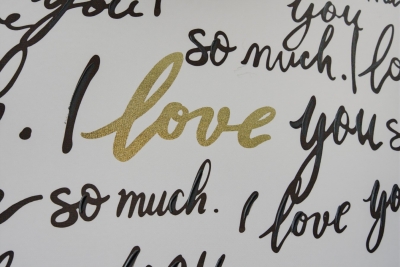 you!
you
so much. I lo
. I love you s
so much. I love yo